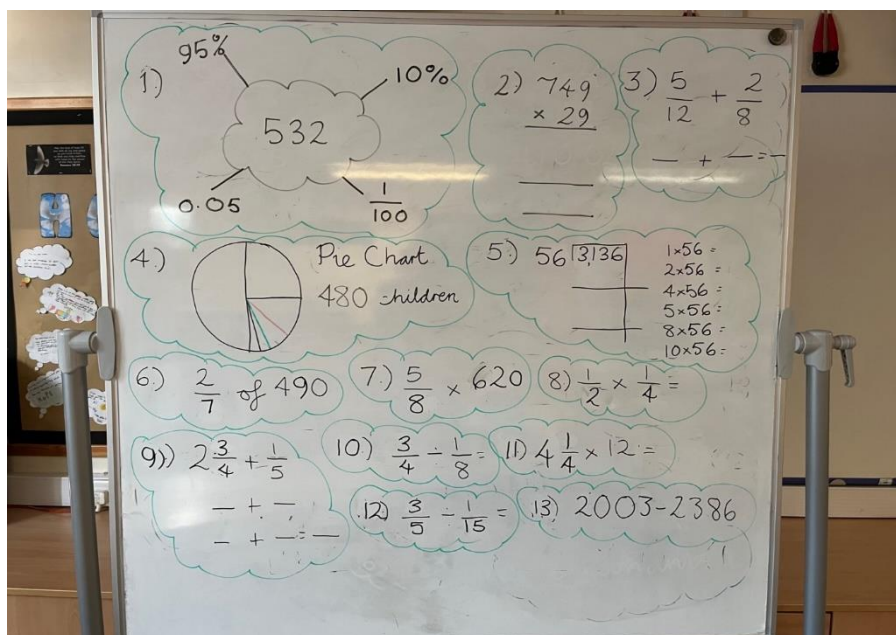 1.)
95%
10%
532
0.05
1/100
2.) 749
× 29
3) 5/12 + 2/8
— + — = —
4.)
Pie Chart
480 children
5.) 56 3,136
1×56 =
2×56 =
4×56 =
5×56 =
8×56 =
10×56 =
6.) 2/7 of 490
7.) 5/8 × 620
8) 1/2 × 1/4 =
9)) 2 3/4 + 1/5
— + —
— + — = —
10.) 3/4 – 1/8 =
11) 4 1/4 × 12 =
12) 3/5 – 1/15 =
13) 2003–2386